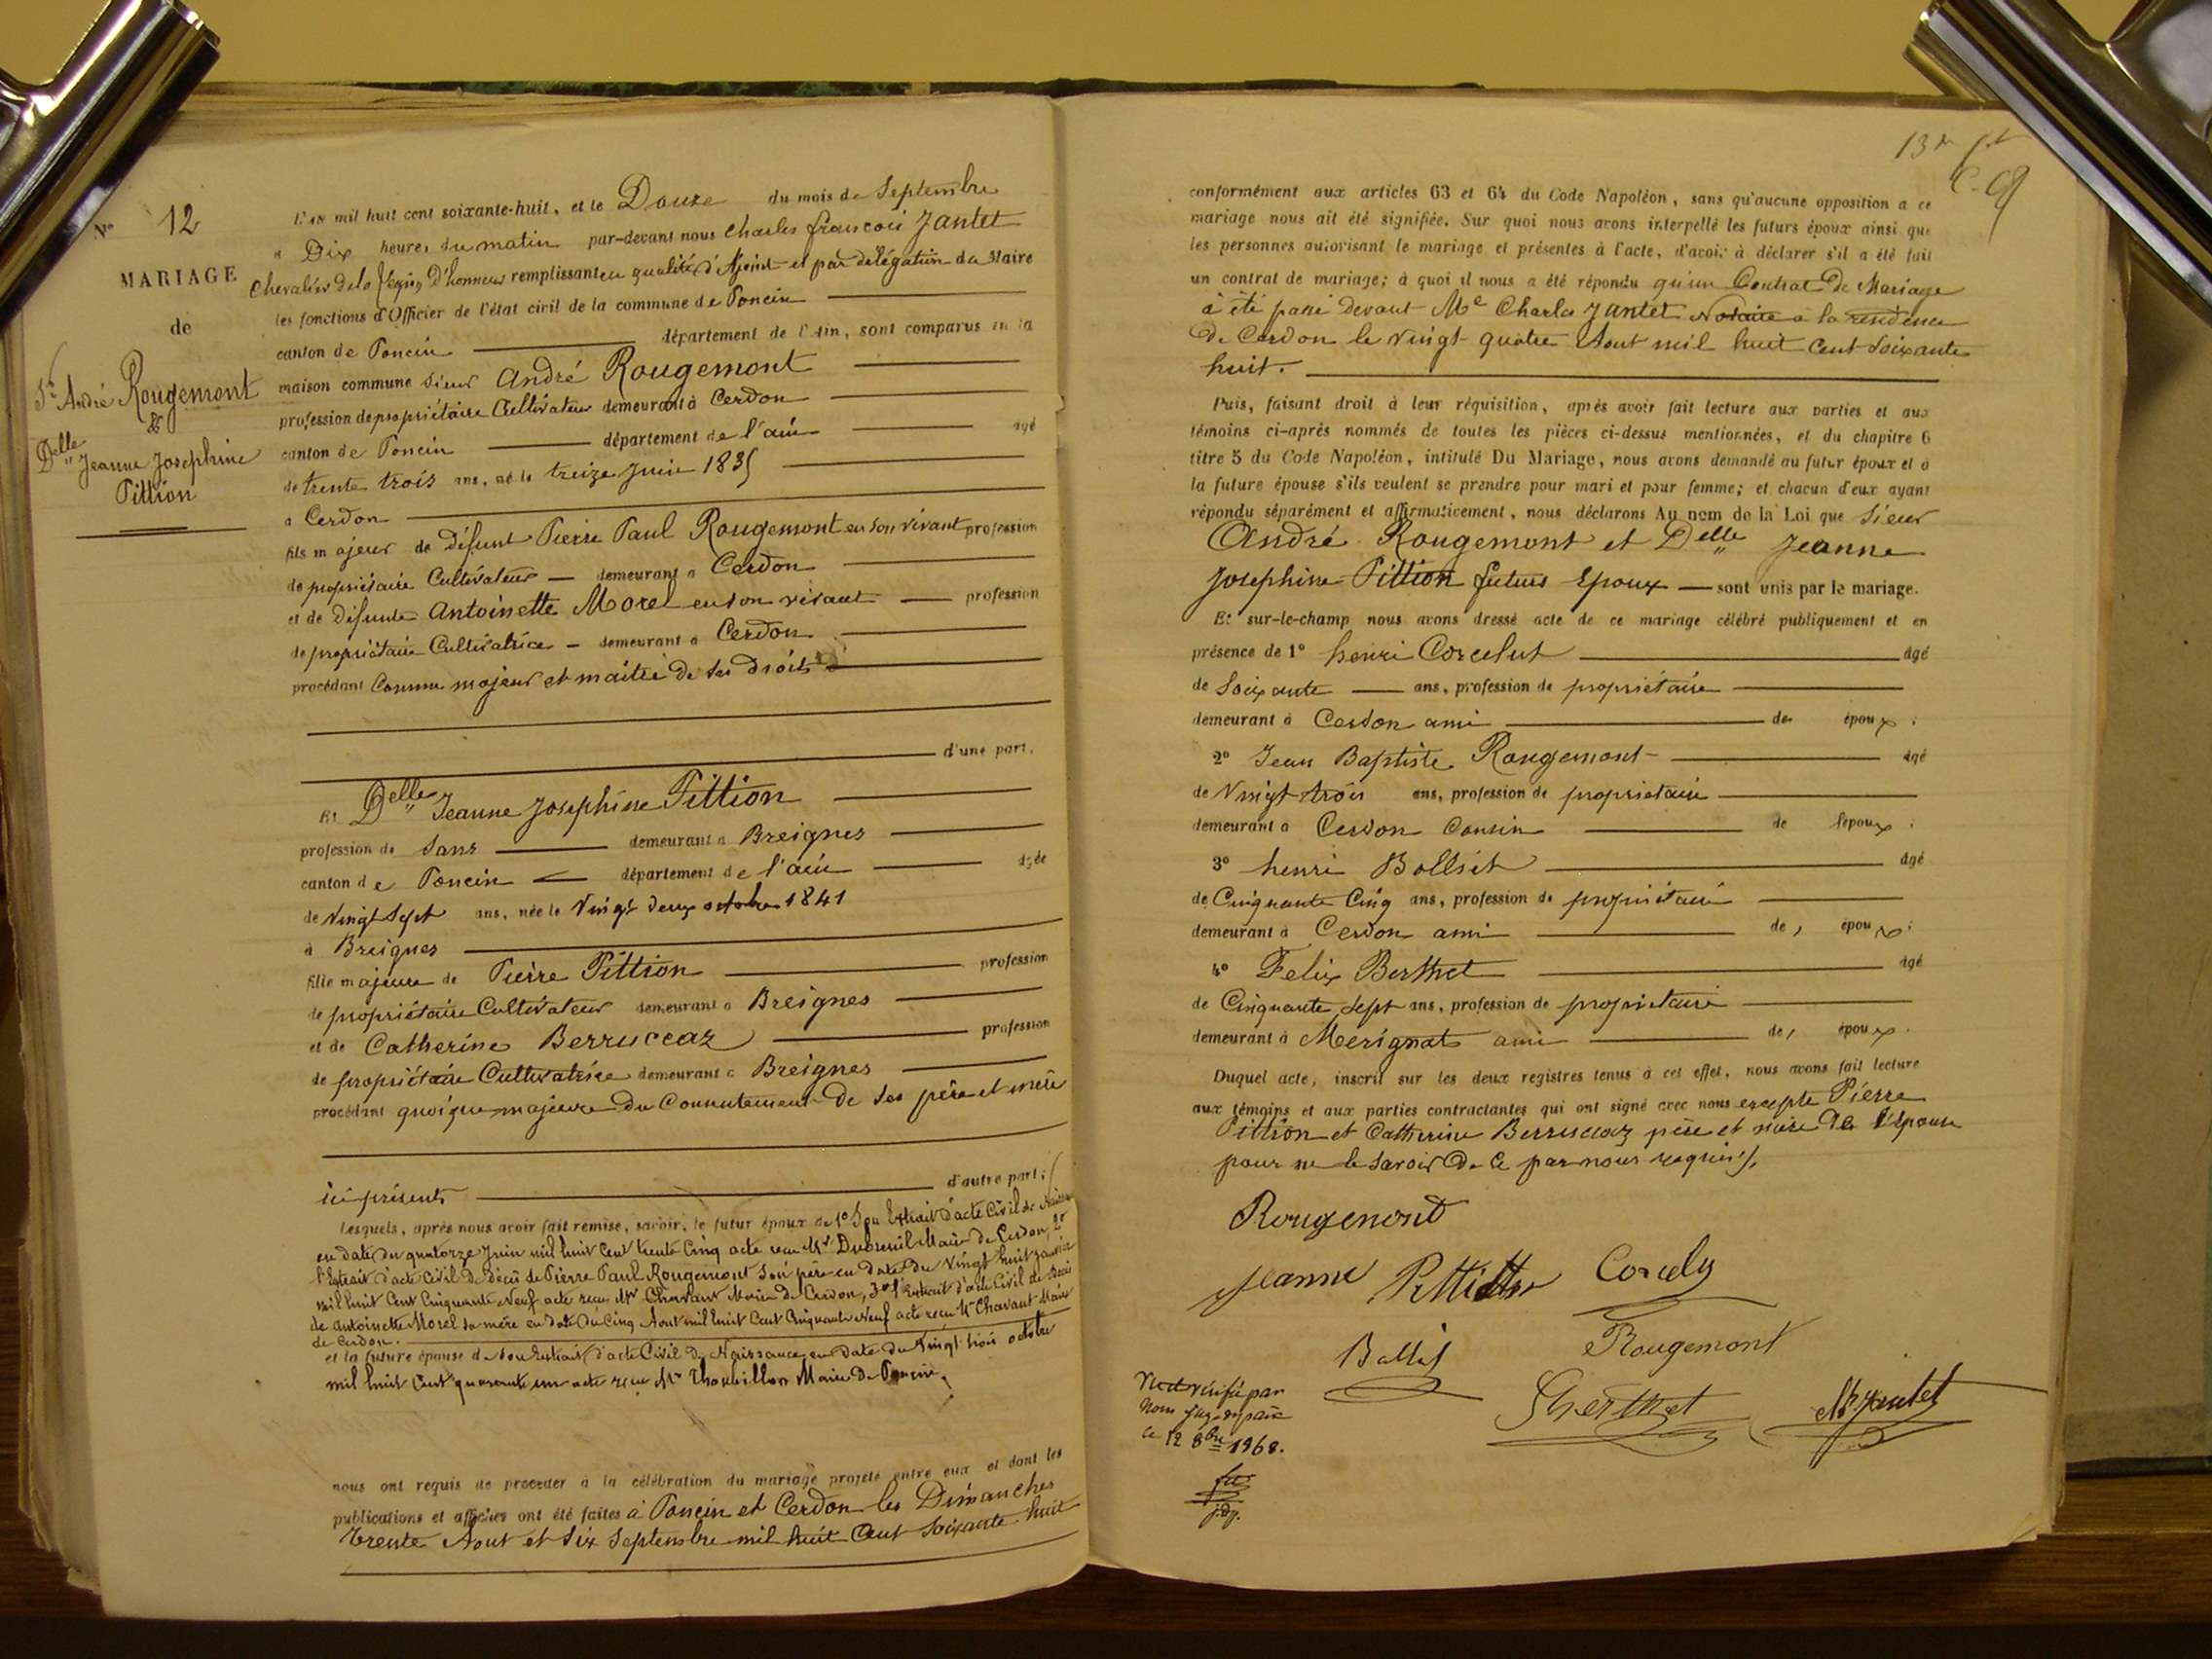 N° 12
MARIAGE
de
Sr André Rougemont
&
Delle Jeanne Josephine
Pittion
L'an mil huit cent soixante-huit, et le Douze du mois de Septembre
à Dix heures du matin par-devant nous Charles françois Jantet
Chevalier de la Légion D'honneur remplissant en qualité d'Ajoint et par délégation du Maire
les fonctions d'Officier de l'état civil de la commune de Poncin
canton de Poncin département de l'Ain, sont comparus en la
maison commune Sieur André Rougemont
profession de propriétaire Cultivateur demeurant à Cerdon
canton de Poncin département de l'ain âgé
de trente trois ans, né le treize Juin 1835
à Cerdon
fils majeur de Défunt Pierre Paul Rougemont en son vivant profession
de propriétaire Cultivateur demeurant à Cerdon
et de Défunte Antoinette Morel en son vivant profession
de propriétaire Cultivatrice demeurant à Cerdon
procédant Comme majeur et maitre de ses droits
d'une part,
Et Delle Jeanne Josephine Pittion
profession de Sans demeurant à Breignes
canton de Poncin département de l'ain âgée
de Vingt Sept ans, née le Vingt deux octobre 1841
à Breignes
fille majeure de Pierre Pittion profession
de propriétaire Cultivateur demeurant à Breignes
et de Catherine Berruccaz profession
de propriétaire Cultivatrice demeurant à Breignes
procédant quoique majeure du Consentement de ses père et mère
ici présents d'autre part;
Lesquels, après nous avoir fait remise, savoir, le futur époux de 1° Son Extrait d'acte Civil de Naissance
en date du quatorze Juin mil huit Cent trente Cinq acte reçu Mr Dubreuil Maire de Cerdon, 2°
l'Extrait d'acte Civil de décès de Pierre Paul Rougemont son père en date du Vingt huit Janvier
mil huit Cent Cinquante Neuf acte reçu Mr Chavant Maire de Cerdon, 3° l'Extrait d'acte Civil de Décès
de Antoinette Morel sa mère en date du Cinq Aout mil huit Cent Cinquante Neuf acte reçu Mr Chavant Maire
de Cerdon.
et la future épouse de Son Extrait d'acte Civil de Naissance en date du Vingt trois octobre
mil huit Cent quarante un acte reçu Mr Thoubillon Maire de Poncin,
nous ont requis de procéder à la célébration du mariage projeté entre eux et dont les
publications et affiches ont été faites à Poncin et Cerdon les Dimanches
trente Aout et Six Septembre mil huit Cent Soixante huit
conformément aux articles 63 et 64 du Code Napoléon, sans qu'aucune opposition à ce
mariage nous ait été signifiée. Sur quoi nous avons interpellé les futurs époux ainsi que
les personnes autorisant le mariage et présentes à l'acte, d'avoir à déclarer s'il a été fait
un contrat de mariage; à quoi il nous a été répondu qu'un Contrat De Mariage
à été passé devant Me Charles Jantet Notaire à la residence
de Cerdon le Vingt quatre Aout mil huit Cent Soixante
huit.
Puis, faisant droit à leur réquisition, après avoir fait lecture aux parties et aux
témoins ci-après nommés de toutes les pièces ci-dessus mentionnées, et du chapitre 6
titre 5 du Code Napoléon, intitulé Du Mariage, nous avons demandé au futur époux et à
la future épouse s'ils veulent se prendre pour mari et pour femme; et chacun d'eux ayant
répondu séparément et affirmativement, nous déclarons Au nom de la Loi que Sieur
André Rougemont et Delle Jeanne
Josephine Pittion futurs Epoux sont unis par le mariage.
Et sur-le-champ nous avons dressé acte de ce mariage célébré publiquement et en
présence de 1° henri Corcelut âgé
de Soixante ans, profession de propriétaire
demeurant à Cerdon ami des époux;
2° Jean Baptiste Rougemont âgé
de Vingt trois ans, profession de propriétaire
demeurant à Cerdon Cousin de l'époux;
3° henri Bolliet âgé
de Cinquante Cinq ans, profession de propriétaire
demeurant à Cerdon ami des époux;
4° Felix Berthet âgé
de Cinquante Sept ans, profession de propriétaire
demeurant à Merignat ami des époux.
Duquel acte, inscrit sur les deux registres tenus à cet effet, nous avons fait lecture
aux témoins et aux parties contractantes qui ont signé avec nous excepte Pierre
Pittion et Catherine Berruccaz père et mère de l'épouse
pour ne le savoir de ce par nous requis.
Rougemont
Jeanne Pittion Corcelu
Rougemont
Berthet
Jantet
Vu et vérifié par
Nous Juge de paix
Ce 12 8bre 1868.